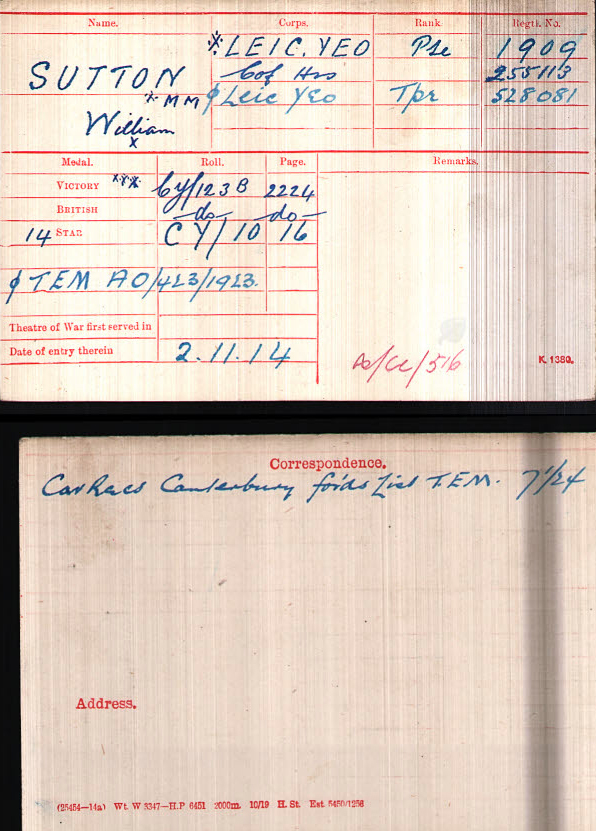 Name. Corps. Rank Regtl. No.
SUTTON * LEIC. YEO Pte 1909
C of Hrs 255113
* MM ϕ Leic Yeo Tpr 528081
William
x
Medal. Roll. Page. Remarks.
VICTORY *** CY/123B 2224
BRITISH —do— —do—
14 STAR CY/10 16
ϕ TEM AO/423/1923.
Theatre of War first served in
Date of entry therein 2.11.14
K. 1380.
Correspondence.
Cav Recs Canterbury fo'ds List T.E.M. 7/1/24
Address.
(25454—14a) Wt. W 3347—H.P 6451 2000m. 10/19 H. St. Est. 5450/1256